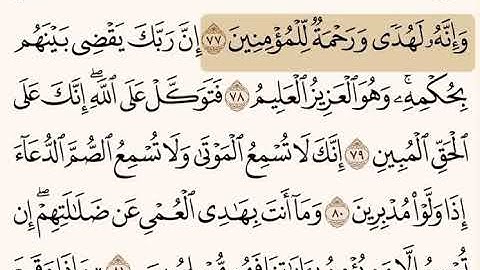 وَإِنَّهُۥ لَهُدٗى وَرَحۡمَةٞ لِّلۡمُؤۡمِنِينَ ٧٧ إِنَّ رَبَّكَ يَقۡضِي بَيۡنَهُم
بِحُكۡمِهِۦۚ وَهُوَ ٱلۡعَزِيزُ ٱلۡعَلِيمُ ٧٨ فَتَوَكَّلۡ عَلَى ٱللَّهِۖ إِنَّكَ عَلَى
ٱلۡحَقِّ ٱلۡمُبِينِ ٧٩ إِنَّكَ لَا تُسۡمِعُ ٱلۡمَوۡتَىٰ وَلَا تُسۡمِعُ ٱلصُّمَّ ٱلدُّعَآءَ
إِذَا وَلَّوۡاْ مُدۡبِرِينَ ٨٠ وَمَآ أَنتَ بِهَٰدِي ٱلۡعُمۡيِ عَن ضَلَٰلَتِهِمۡۖ إِن